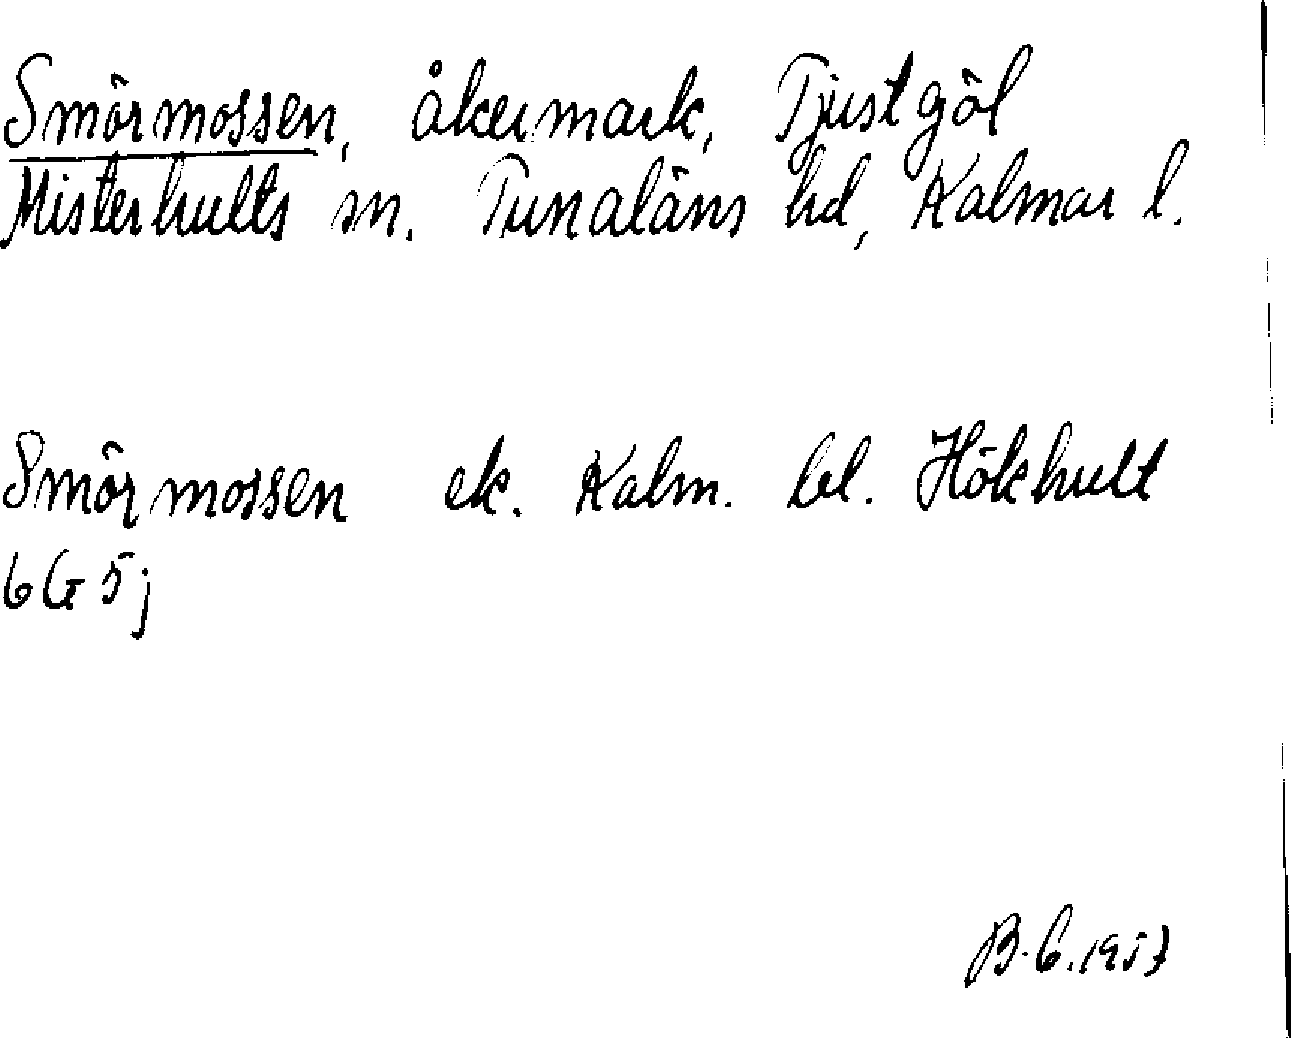 Smörmossen, åkermark, Tjustgöl
Misterhults sn. Tunaläns hd, Kalmar l.
Smörmossen ek. Kalm. bl. Hökhult
6G 5j
B.G. 1957